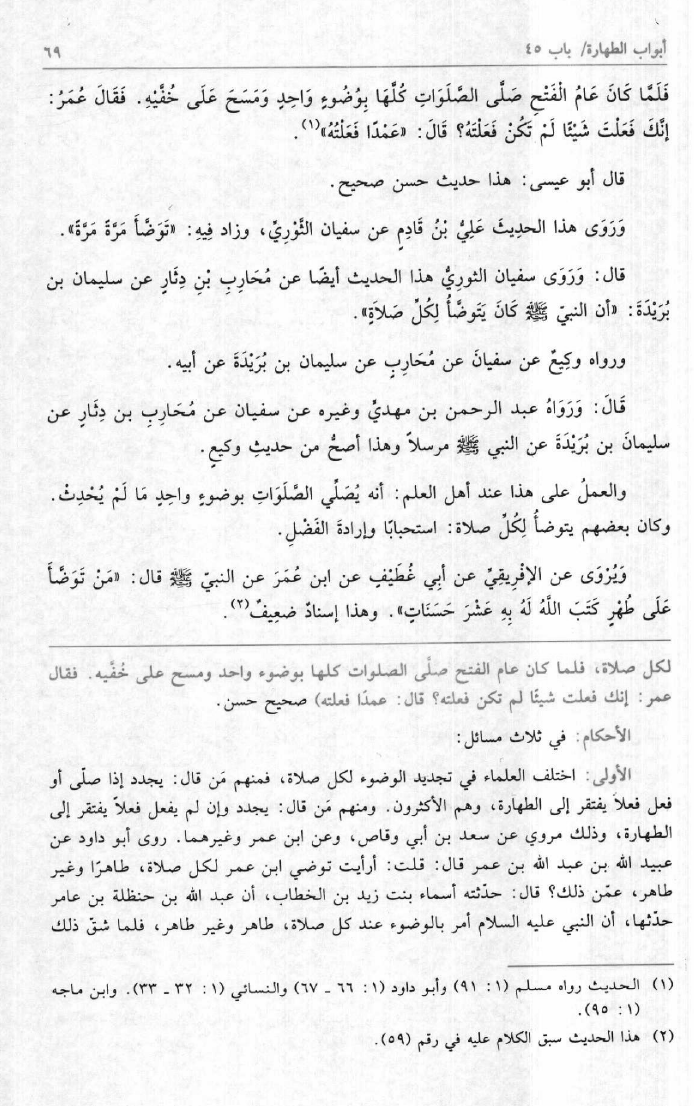 أبواب الطهارة/ باب ٤٥ ٦٩
فَلَمَّا كَانَ عَامُ الْفَتْحِ صَلَّى الصَّلَوَاتِ كُلَّهَا بِوُضُوءٍ وَاحِدٍ وَمَسَحَ عَلَى خُفَّيْهِ. فَقَالَ عُمَرُ:
إنَّكَ فَعَلْتَ شَيْئًا لَمْ تَكُنْ فَعَلْتَهُ؟ قَالَ: «عَمْدًا فَعَلْتُهُ»(١).
قال أبو عيسى: هذا حديث حسن صحيح.
وَرَوَى هذا الحدِيثَ عَلِيُّ بْنُ قَادِمٍ عن سفيان الثَّوْرِيِّ، وزاد فِيهِ: «تَوَضَّأَ مَرَّةً مَرَّةً».
قال: وَرَوَى سفيان الثوريُّ هذا الحديث أيضًا عن مُحَارِبِ بْنِ دِثَارٍ عن سليمان بن
بُرَيْدَةَ: «أن النبيّ ﷺ كَانَ يَتَوضَّأُ لِكُلِّ صَلاَةٍ».
ورواه وكِيعٌ عن سفيانَ عن مُحَارِبٍ عن سليمان بن بُرَيْدَةَ عن أبيه.
قَالَ: وَرَوَاهُ عبد الرحمن بن مهديٍّ وغيره عن سفيان عن مُحَارِبِ بن دِثَارٍ عن
سليمانَ بن بُرَيْدَةَ عن النبي ﷺ مرسلاً وهذا أصحُّ من حديثِ وكيعٍ.
والعملُ على هذا عند أهل العلم: أنه يُصَلِّي الصَّلَوَاتِ بوضوءٍ واحدٍ مَا لَمْ يُحْدِثْ.
وكان بعضهم يتوضأُ لِكُلِّ صلاة: استحبابًا وإرادةَ الفَضْلِ.
وَيُرْوَى عن الإفْرِيقِيِّ عن أبِي غُطَيْفٍ عن ابن عُمَرَ عن النبيّ ﷺ قال: «مَنْ تَوَضَّأَ
عَلَى طُهْرٍ كَتَبَ اللَّهُ لَهُ بِهِ عَشْرَ حَسَنَاتٍ». وهذا إسنادٌ ضعِيفٌ(٢).
لكل صلاة، فلما كان عام الفتح صلَّى الصلوات كلها بوضوء واحد ومسح على خُفَّيه. فقال
عمر: إنك فعلت شيئًا لم تكن فعلته؟ قال: عمدًا فعلته) صحيح حسن.
الأحكام: في ثلاث مسائل:
الأولى: اختلف العلماء في تجديد الوضوء لكل صلاة، فمنهم مَن قال: يجدد إذا صلّى أو
فعل فعلاً يفتقر إلى الطهارة، وهم الأكثرون. ومنهم مَن قال: يجدد وإن لم يفعل فعلاً يفتقر إلى
الطهارة، وذلك مروي عن سعد بن أبي وقاص، وعن ابن عمر وغيرهما. روى أبو داود عن
عبيد الله بن عبد الله بن عمر قال: قلت: أرأيت توضي ابن عمر لكل صلاة، طاهرًا وغير
طاهر، عمّن ذلك؟ قال: حدّثته أسماء بنت زيد بن الخطاب، أن عبد الله بن حنظلة بن عامر
حدّثها، أن النبي عليه السلام أمر بالوضوء عند كل صلاة، طاهر وغير طاهر، فلما شقّ ذلك
(١) الحديث رواه مسلم (١: ٩١) وأبو داود (١: ٦٦ ـ ٦٧) والنسائي (١: ٣٢ ـ ٣٣). وابن ماجه
(١: ٩٥).
(٢) هذا الحديث سبق الكلام عليه في رقم (٥٩).